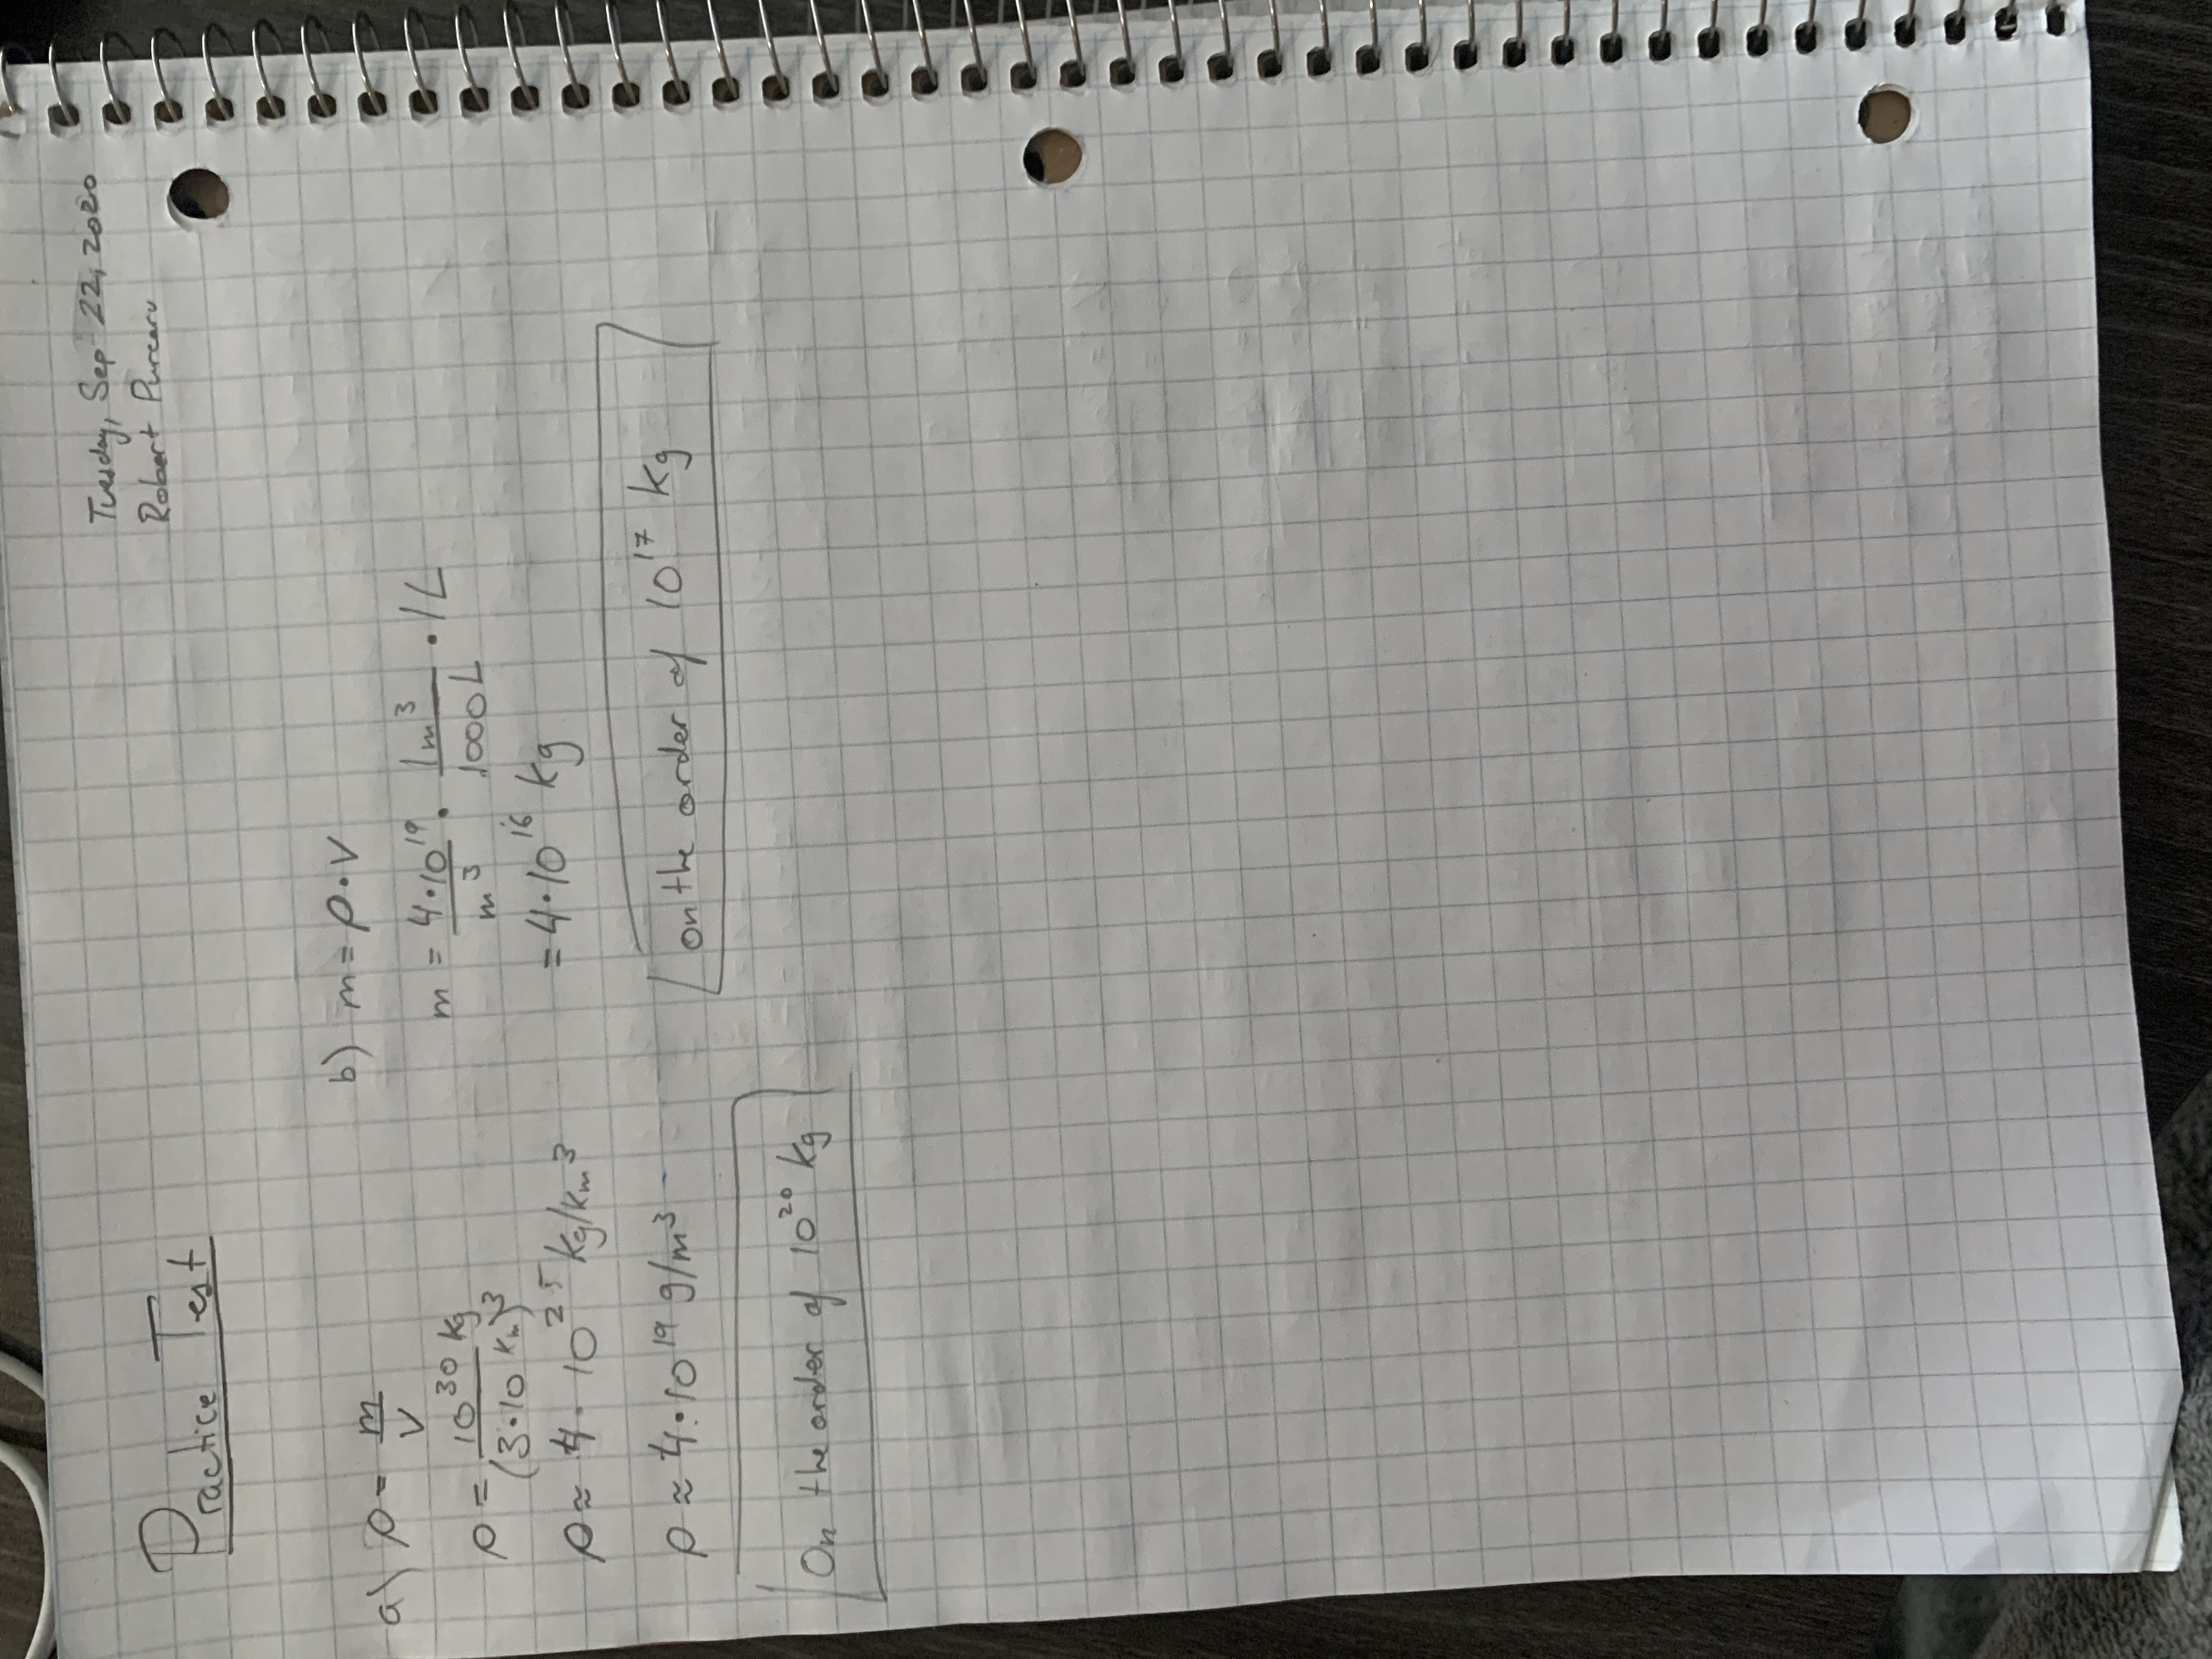 Tuesday, Sep 22, 2020
Robert Purcaru
Practice Test
a) ρ = m/V
ρ = 10³⁰ kg/(3·10 km)³
ρ ≈ 4 · 10²⁵ kg/km³
ρ ≈ 4·10¹⁹ g/m³
On the order of 10²⁰ kg
b) m = ρ·V
m = 4·10¹⁹/m³ · 1m³/1000L · 1L
= 4·10¹⁶ kg
on the order of 10¹⁷ kg